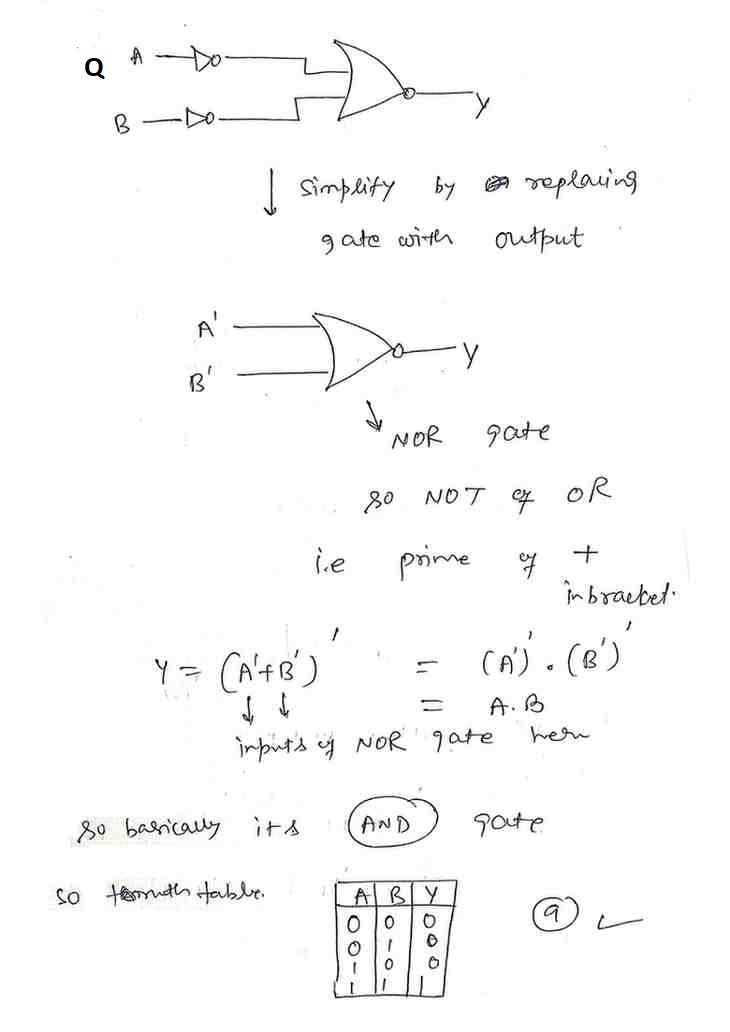 Q A
B
Y
Simplify by replacing
gate with output
A'
B'
Y
NOR gate
so NOT of OR
i.e prime of +
in bracket.
Y = (A'+B')' = (A')' . (B')'
= A.B
inputs of NOR gate here
so basically its AND gate
so truth table.
A B Y
0 0 0
0 1 0
1 0 0
1 1 1
a